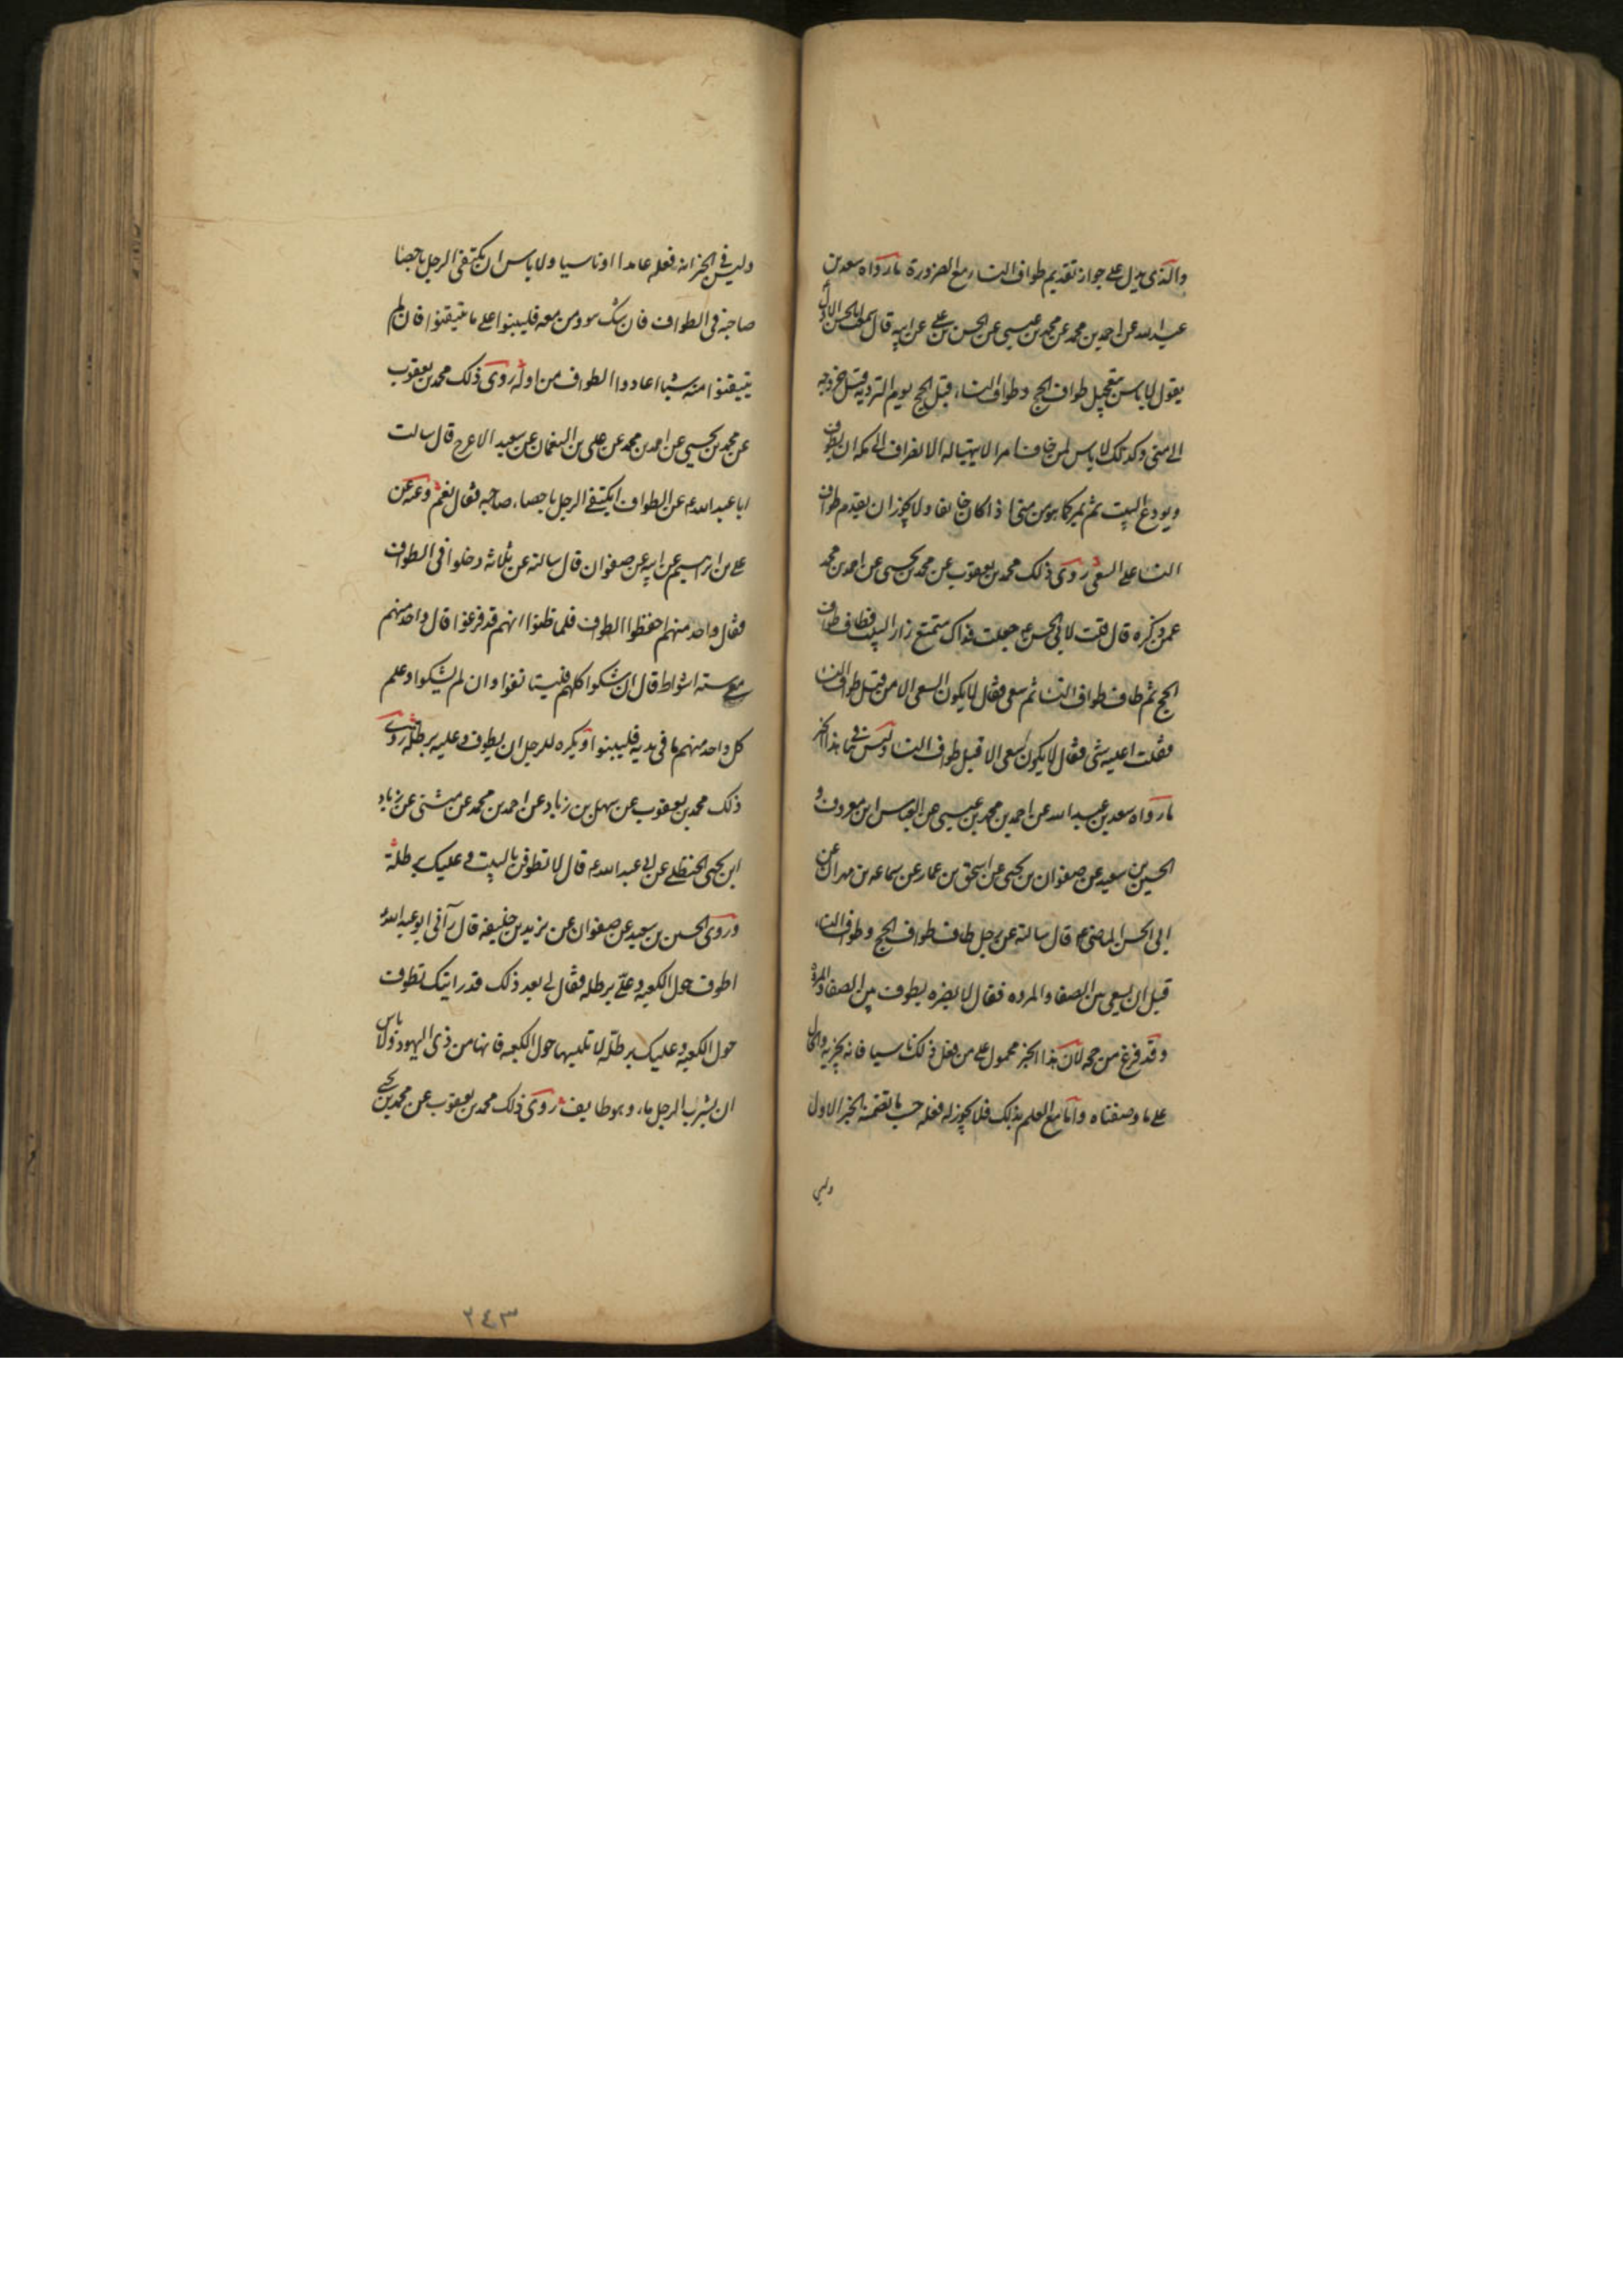 والذی یدل علی جواز تقدیم طواف النساء مع الضرورة ما رواه سعد بن
عبد الله عن احمد بن محمد عن محمد بن عیسی عن الحسن بن علی عن ابیه قال سمعت ابا الحسن الاول
یقول لا باس بتعجیل طواف الحج وطواف النساء قبل الحج یوم الترویة قبل خروجه
الی منی وکذلک لا باس لمن خاف امرا لا یتهیا له الانصراف الی مکه ان یطوف
ویودع البیت ثم یمر کما هو من منی اذا کان خائفا ولا یجوز ان یقدم طواف
النسا علی السعی روی ذلک محمد بن یعقوب عن محمد بن یحیی عن احمد بن محمد
عمن ذکره قال قلت لابی الحسن ع جعلت فداک متمتع زار البیت فطاف طواف
الحج ثم طاف طواف النسا ثم سعی فقال لا یکون السعی الا من قبل طواف النسا
فقلت اعلیه شی فقال لا یکون سعی الا قبل طواف النسا ولیس ینافی هذا الخبر
ما رواه سعد بن عبد الله عن احمد بن محمد بن عیسی عن العباس ابن معروف و
الحسین بن سعید عن صفوان بن یحیی عن اسحق بن عمار عن سماعه بن مهران عن
ابی الحسن الماضی ع قال سالته عن رجل طاف طواف الحج وطواف النساء
قبل ان یسعی بین الصفا والمروه فقال لا یضره یطوف بین الصفا والمروة
وقد فرغ من حجه لان هذا الخبر محمول علی من فعل ذلک ناسیا فانه یجزیه والحال
علی ما وصفناه واما مع العلم بذلک فلا یجوز له فعله حسب ما تضمنه الخبر الاول
ولیس
ولیس فی الخبر انه فعله عامدا او ناسیا ولا باس ان یکتفی الرجل باحصا
صاحبه فی الطواف فان شک هو ومن معه فلیبنوا علی ما تیقنوا فان لم
یتیقنوا منه شیئا اعادوا الطواف من اوله روی ذلک محمد بن یعقوب
عن محمد بن یحیی عن احمد بن محمد عن علی بن النعمان عن سعید الاعرج قال سالت
ابا عبد الله ع عن الطواف ایکتفی الرجل باحصاء صاحبه فقال نعم وعنه عن
علی بن ابرهیم عن ابیه عن صفوان قال سالته عن ثلاثه دخلوا فی الطواف
فقال واحد منهم احفظوا الطواف فلما ظنوا انهم قد فرغوا قال واحد منهم
معی سته اشواط قال ان شکوا کلهم فلیستانفوا وان لم یشکوا وعلم
کل واحد منهم ما فی یدیه فلیبنوا ویکره للرجل ان یطوف وعلیه برطلة روی
ذلک محمد بن یعقوب عن سهل بن زیاد عن احمد بن محمد عن مثنی عن زیاد
ابن یحیی الحنظلی عن ابی عبد الله ع قال لا تطوفن بالبیت وعلیک برطلة
وروی الحسین بن سعید عن صفوان عن یزید بن خلیفه قال رآنی ابو عبد الله ع
اطوف حول الکعبه وعلی برطله فقال لی بعد ذلک قد رایتک تطوف
حول الکعبه وعلیک برطله لا تلبسها حول الکعبه فانها من زی الیهود ولا باس
ان یشرب الرجل ماء وهو طایف روی ذلک محمد بن یعقوب عن محمد بن یحیی
٢٤٣